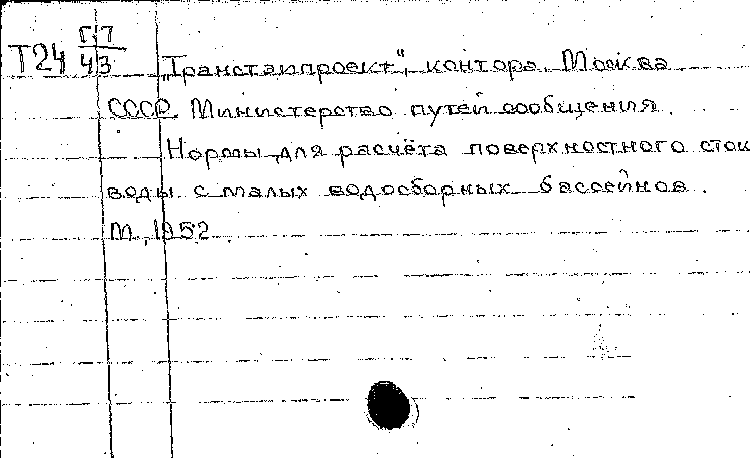 Т24 Г7
43
„Транстехпроект", контора. Москва
СССР. Министерство путей сообщения.
Нормы для расчёта поверхностного сток
воды с малых водосборных бассейнов.
М., 1952.